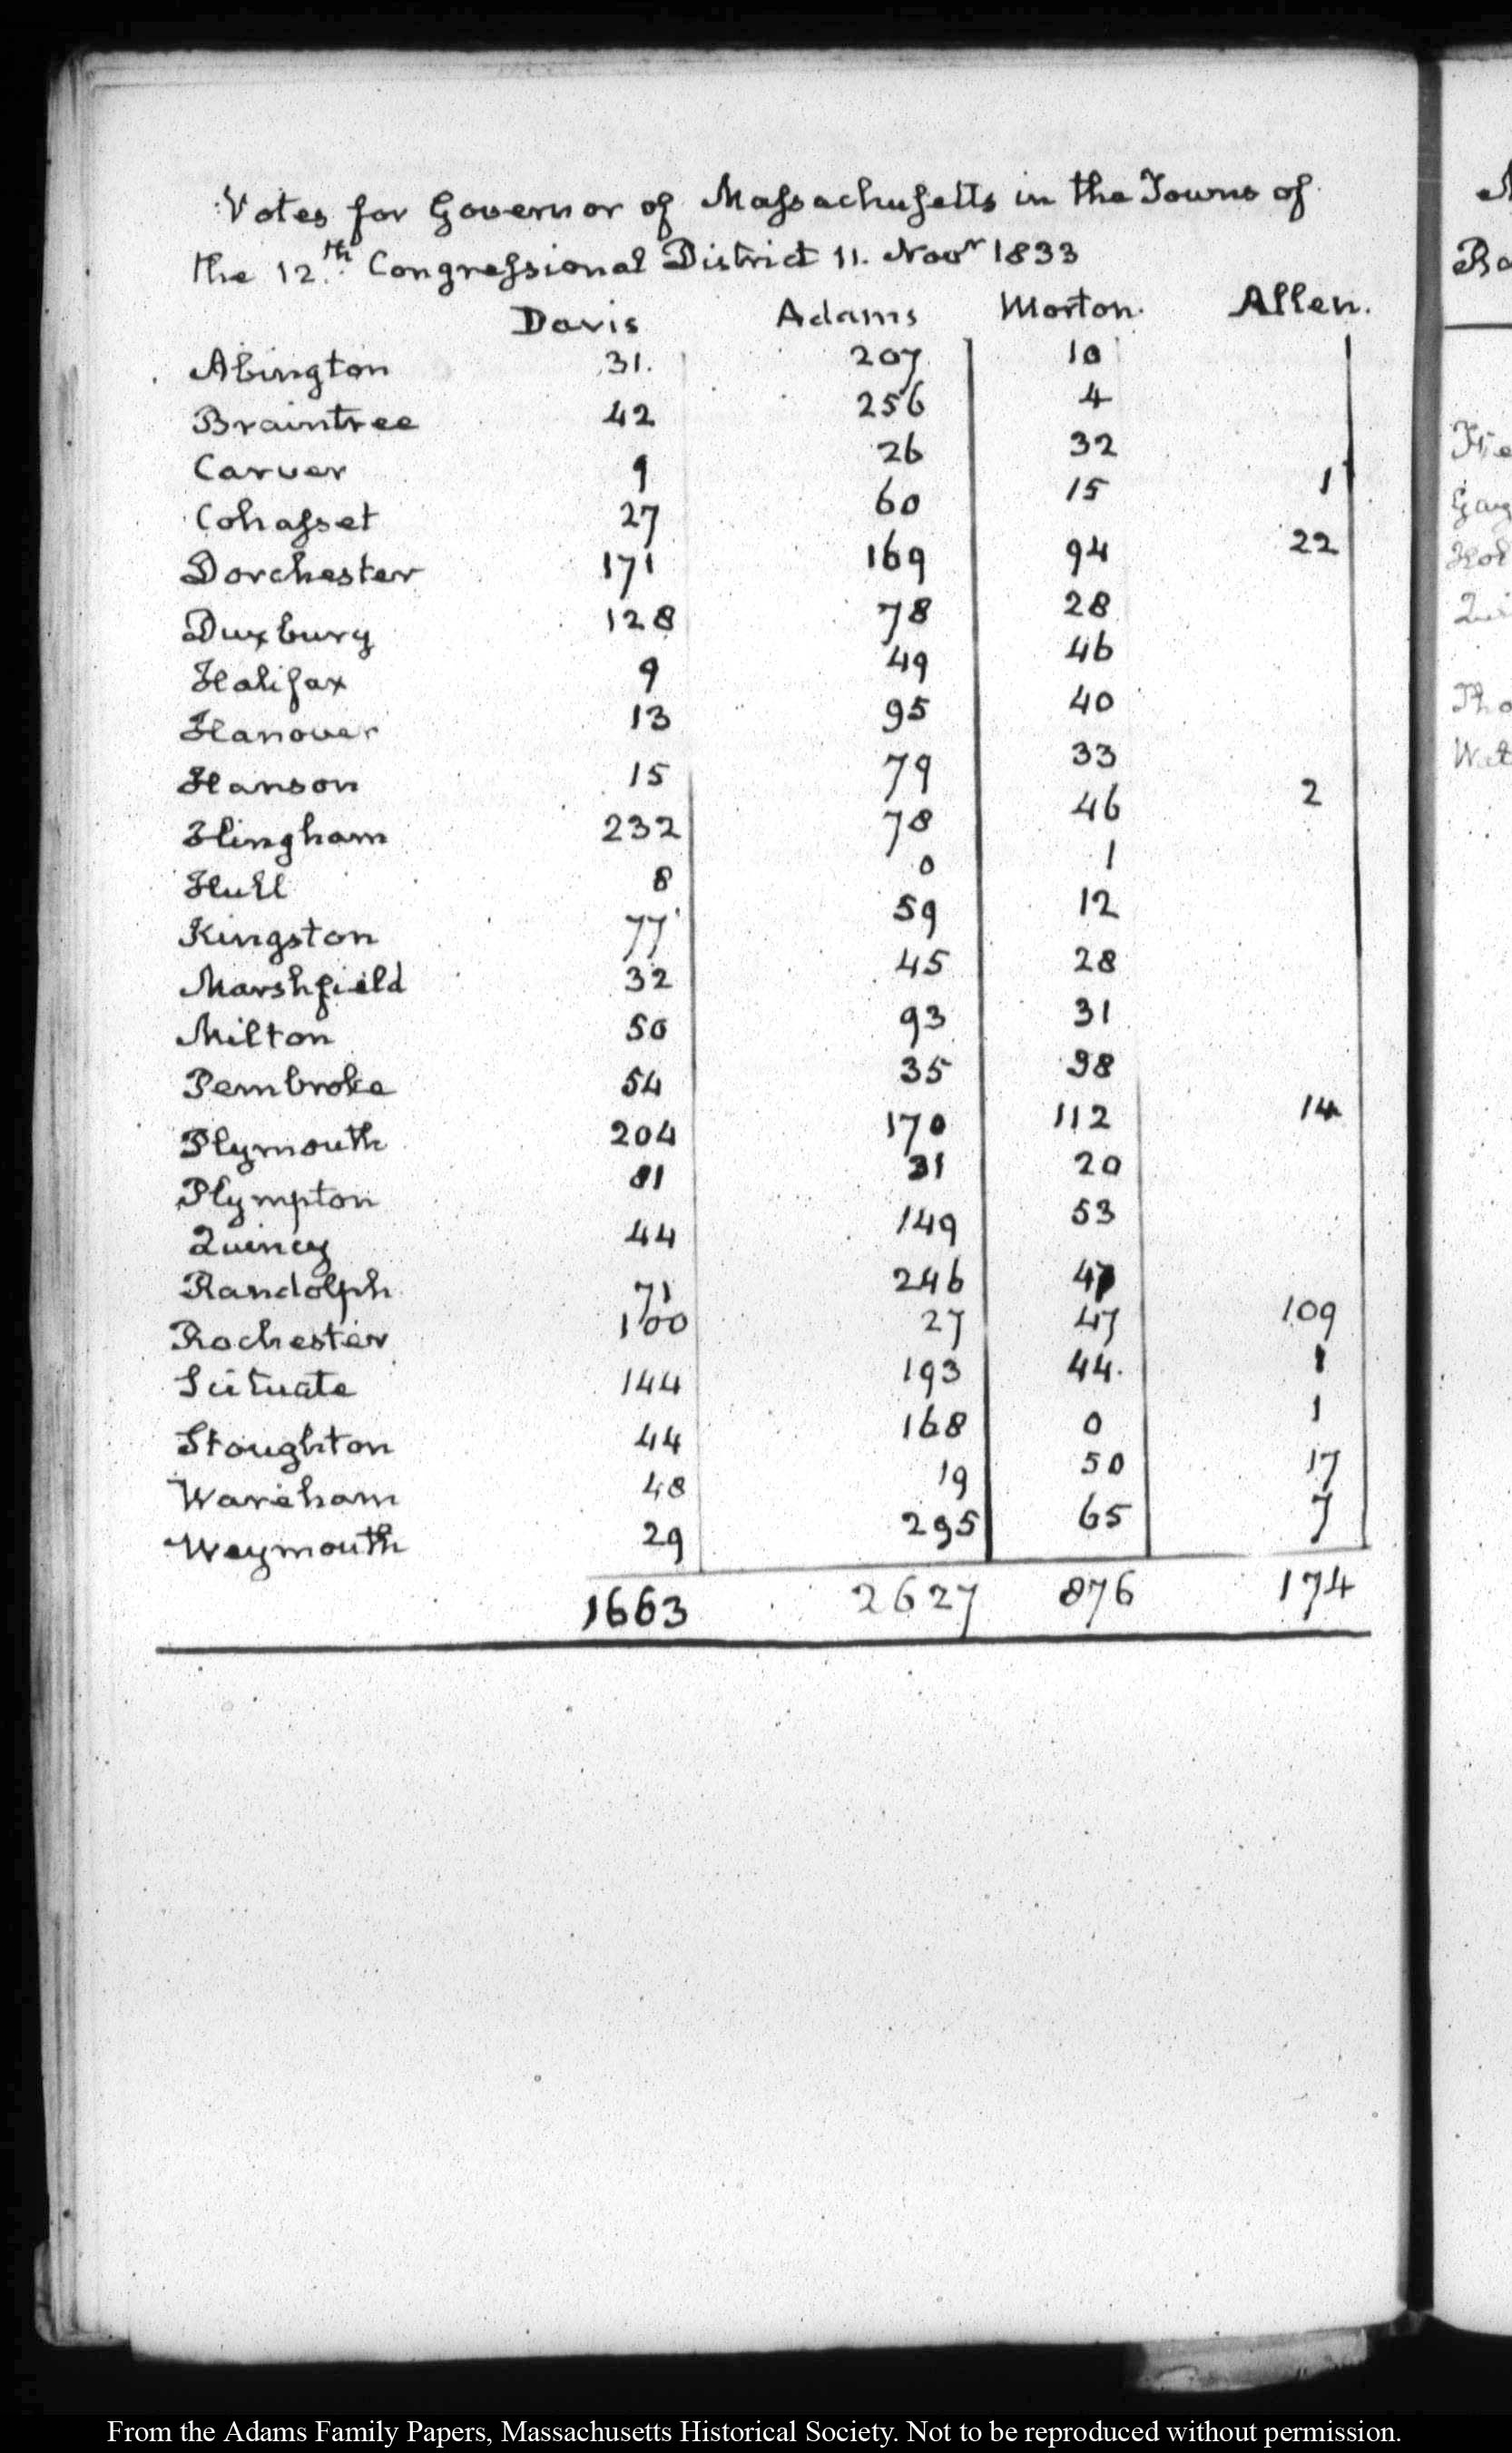 Votes for Governor of Massachusetts in the Towns of
the 12.th Congressional District 11. Novr 1833
Davis Adams Morton. Allen.
Abington 31. 207 10
Braintree 42 256 4
Carver 9 26 32
Cohasset 27 60 15 1
Dorchester 171 169 94 22
Duxbury 128 78 28
Halifax 9 49 46
Hanover 13 95 40
Hanson 15 79 33
Hingham 232 78 46 2
Hull 8 0 1
Kingston 77 59 12
Marshfield 32 45 28
Milton 50 93 31
Pembroke 54 35 38
Plymouth 204 170 112 14
Plympton 81 31 20
Quincy 44 149 53
Randolph 71 246
Rochester 100 27 47 109
Scituate 144 193 44. 1
Stoughton 44 168 0 1
Wareham 48 19 50 17
Weymouth 29 295 65 7
1663 2627 876 174
From the Adams Family Papers, Massachusetts Historical Society. Not to be reproduced without permission.